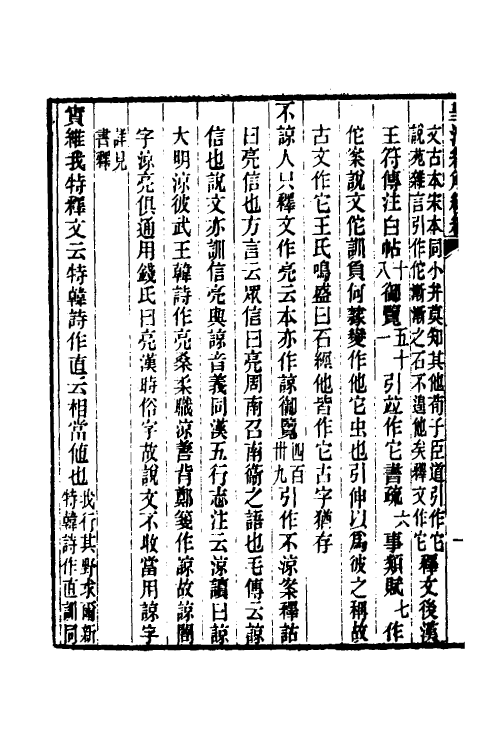 文古本宋本同小弁莫知其他荀子臣道引作它
說苑雜言引作佗漸漸之石不遑他矣釋文作它
釋文後漢
王符傳注白帖十八御覽五十一引竝作它書疏六事類賦七作
佗案說文佗訓負何隸變作他它虫也引伸以爲彼之稱故
古文作它王氏鳴盛曰石經他皆作它古字猶存
不諒人只釋文作亮云本亦作諒御覽四百卅九引作不涼案釋詁
曰亮信也方言云眾信曰亮周南召南衞之語也毛傳云諒
信也說文亦訓信亮與諒音義同漢五行志注云涼讀曰諒
大明涼彼武王韓詩作亮桑柔職涼善背鄭箋作諒故諒闇
字涼亮俱通用錢氏曰亮漢時俗字故說文不收當用諒字
詳見
書釋
實維我特釋文云特韓詩作直云相當値也
我行其野求爾新
特韓詩作直訓同